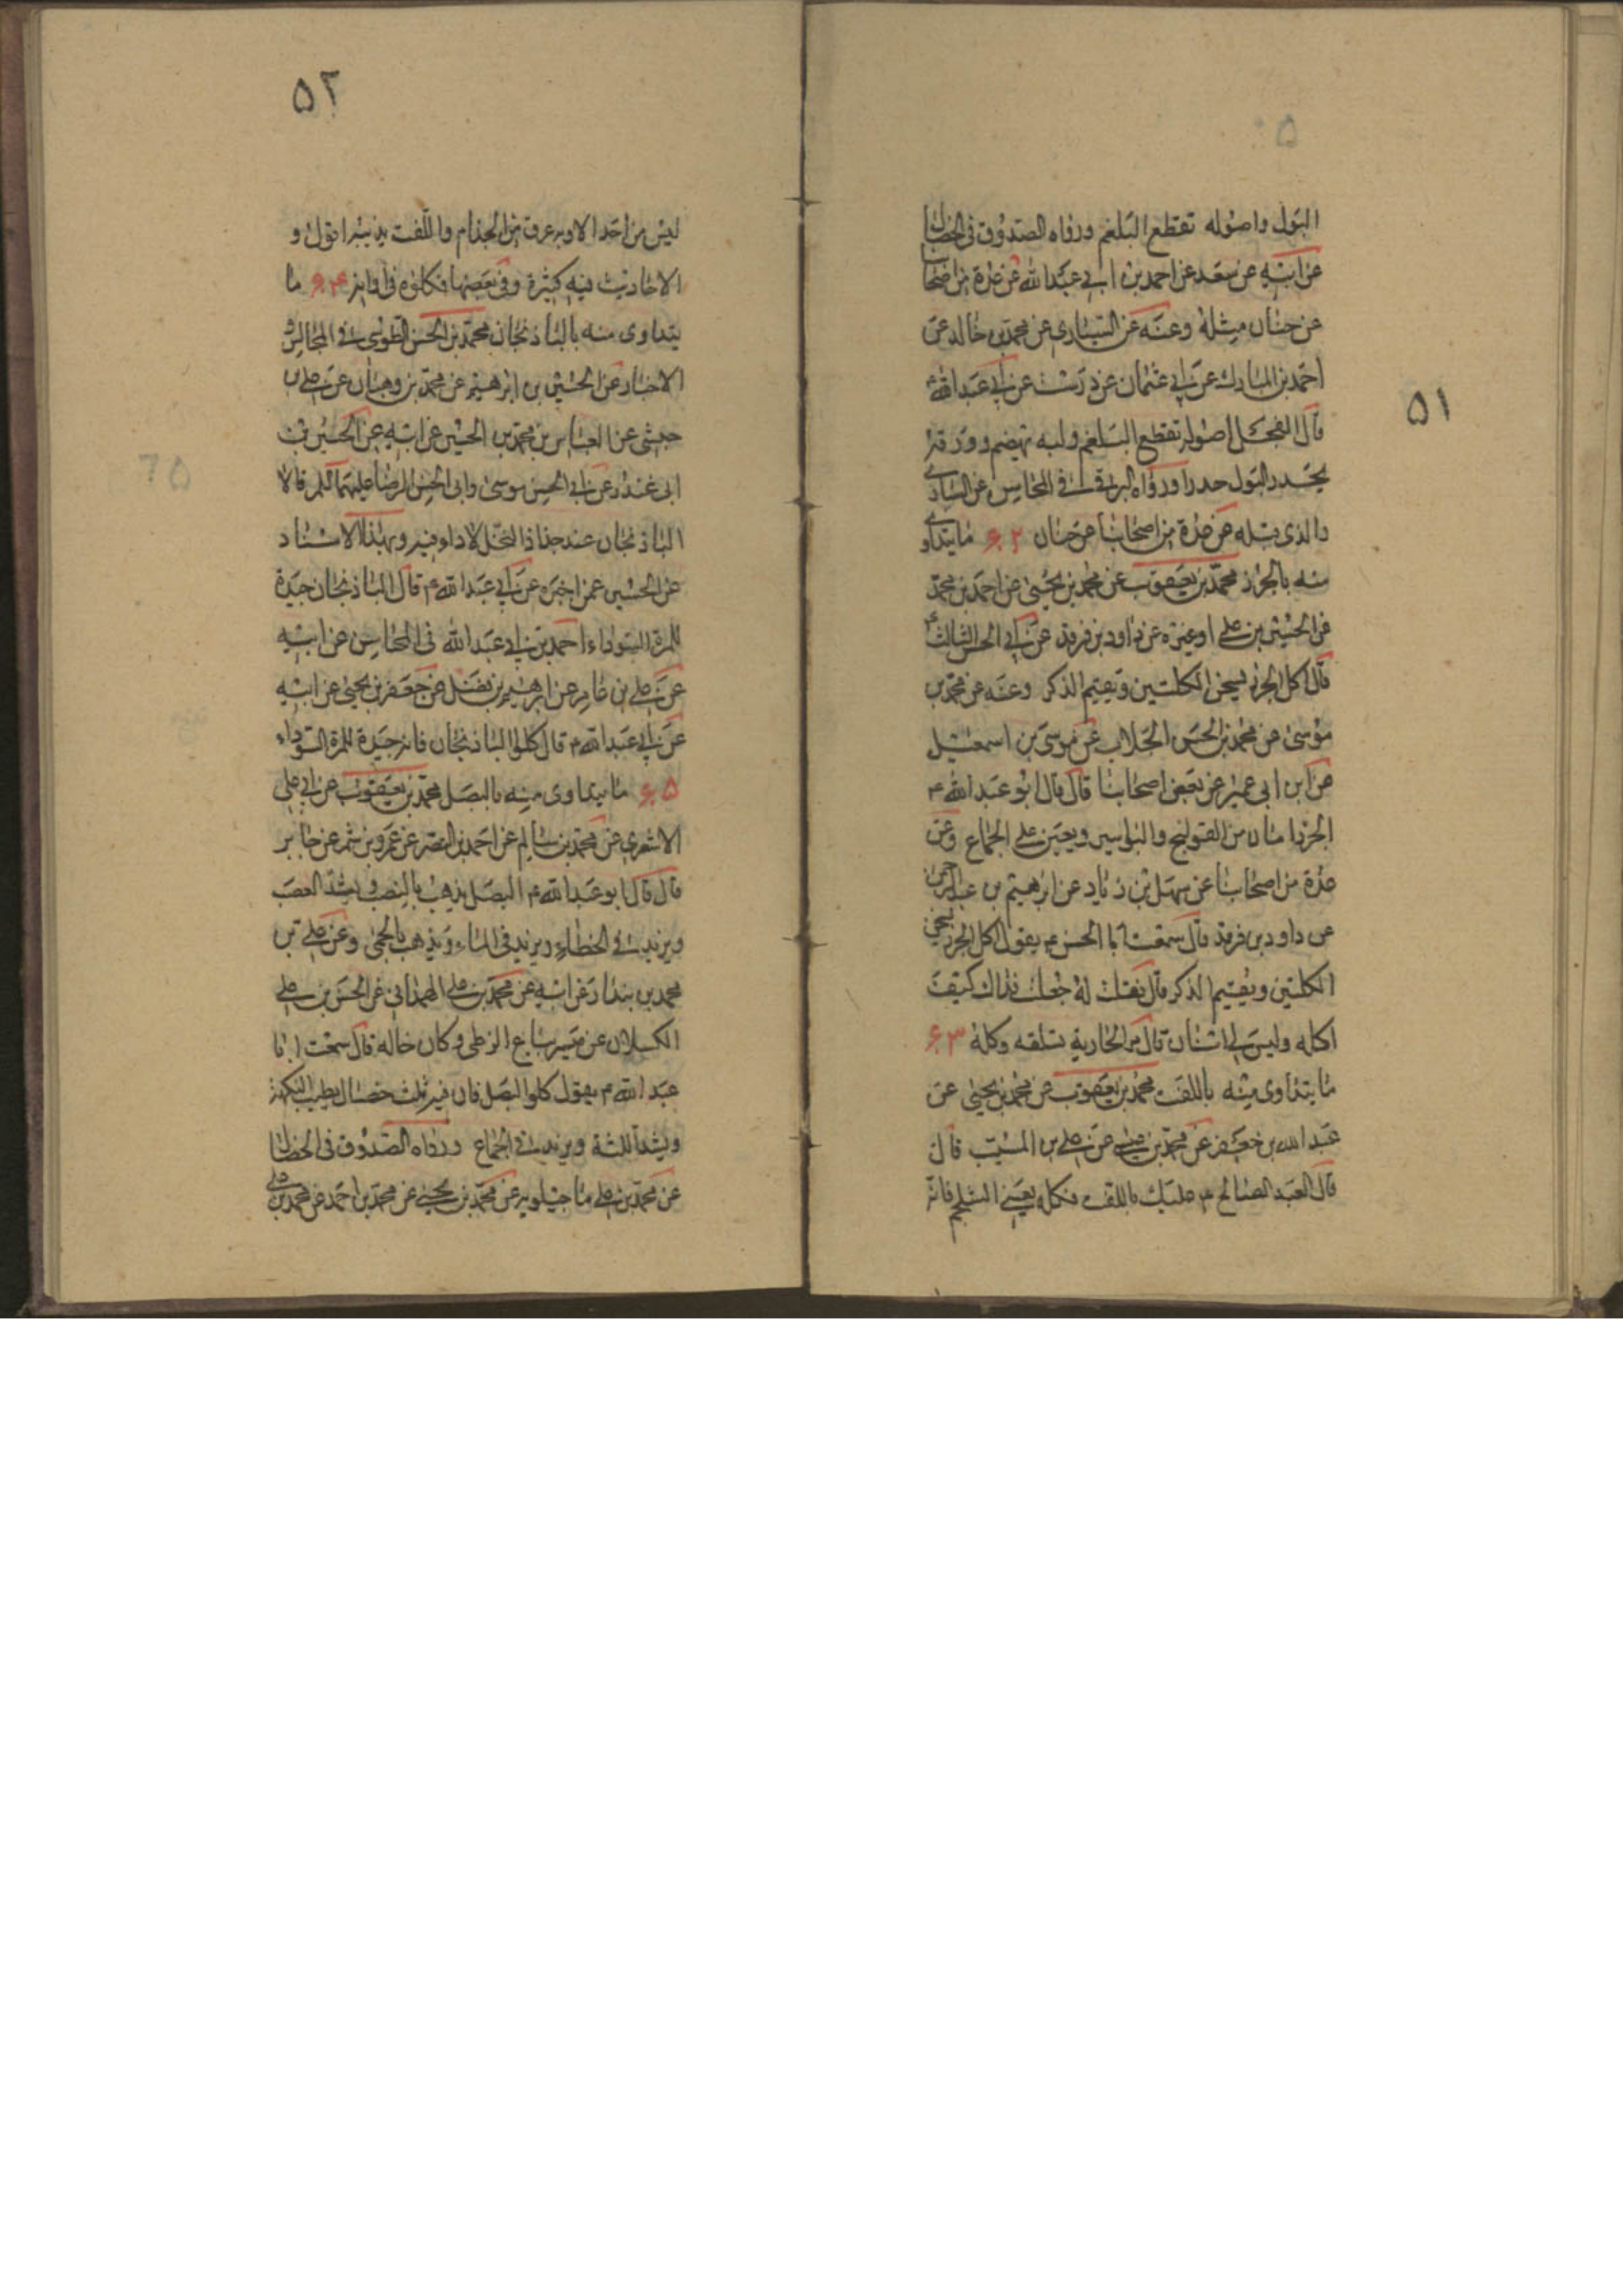 ٥١
البول واصوله تقطع البلغم ورواه الصدوق فى الخصال
عن ابيه عن سعد عن احمد بن ابي عبد الله عن عدة من اصحابنا
عن حنان مثله وعنه عن السياري عن محمد بن خالد عن
احمد بن المبارك عن ابي عثمان عن درست عن ابي عبد الله ع
قال الفجل اصوله تقطع البلغم ولبه يهضم وورقه
يحدر البول حدرا ورواه البرقي في المحاسن عن السياري
والذي قبله عن عدة من اصحابنا عن حنان ٦٢ ما يتداوى
منه بالجزر محمد بن يعقوب عن محمد بن يحيى عن احمد بن محمد
عن الحسين بن علي او غيره عن داود بن فرقد عن ابي الحسن الثالث ع
قال اكل الجزر يسخن الكليتين ويقيم الذكر وعنه عن محمد بن
موسى عن محمد بن الحسن الجلاب عن موسى بن اسمعيل
عن ابن ابى عمير عن بعض اصحابنا قال قال ابو عبد الله ع
الجزر امان من القولنج والبواسير ويعين على الجماع وعن
عدة من اصحابنا عن سهل بن زياد عن ابرهيم بن عبد الرحمن
عن داود بن فرقد قال سمعت ابا الحسن ع يقول اكل الجزر يسخن
الكليتين ويقيم الذكر قال فقلت له جعلت فداك كيف
اكله وليس لي اسنان قال مر الجارية تسلقه وكله ٦٣
ما يتداوى منه باللفت محمد بن يعقوب عن محمد بن يحيى عن
عبد الله بن جعفر عن محمد بن عيسى عن علي بن المسيب قال
قال العبد الصالح ع عليك باللفت فكله يعني السلجم فانه
٥٢
ليس من احد الا وبه عرق من الجذام واللفت يذيبه اقول و
الاحاديث فيه كثيرة وفى بعضها فكلوه فى اوانه ٦٤ ما
يتداوى منه بالباذنجان محمد بن الحسن الطوسى في المجالس و
الاخبار عن الحسين بن ابرهيم عن محمد بن وهبان عن علي بن
حبشى عن العباس بن محمد بن الحسين عن ابيه عن الحسين بن
ابى غندر عن ابي الحسن موسى وابى الحسن الرضا عليهما السلام قالا
الباذنجان عند جذاذ النخل لا داء فيه وبهذا الاسناد
عن الحسين عمن اخبره عن ابي عبد الله ع قال الباذنجان جيد
للمرة السوداء احمد بن ابي عبد الله فى المحاسن عن ابيه
عن علي بن عامر عن ابرهيم بن الفضل عن جعفر بن يحيى عن ابيه
عن ابي عبد الله ع قال كلوا الباذنجان فانه جيد للمرة السوداء
٦٥ ما يتداوى منه بالبصل محمد بن يعقوب عن ابي علي
الاشعري عن محمد بن سالم عن احمد بن النضر عن عمرو بن شمر عن جابر
قال قال ابو عبد الله ع البصل يذهب بالنصب ويشد العصب
ويزيد في الخطاء ويزيد فى الماء ويذهب بالحمى وعن علي بن
محمد بن بندار عن ابيه عن محمد بن علي الهمداني عن الحسن بن علي
الكسلان عن ميسر بياع الزطي وكان خاله قال سمعت ابا
عبد الله ع يقول كلوا البصل فان فيه ثلث خصال يطيب النكهة
ويشد اللثة ويزيد في الجماع ورواه الصدوق فى الخصال
عن محمد بن علي ماجيلويه عن محمد بن يحيى عن محمد بن احمد عن محمد بن علي